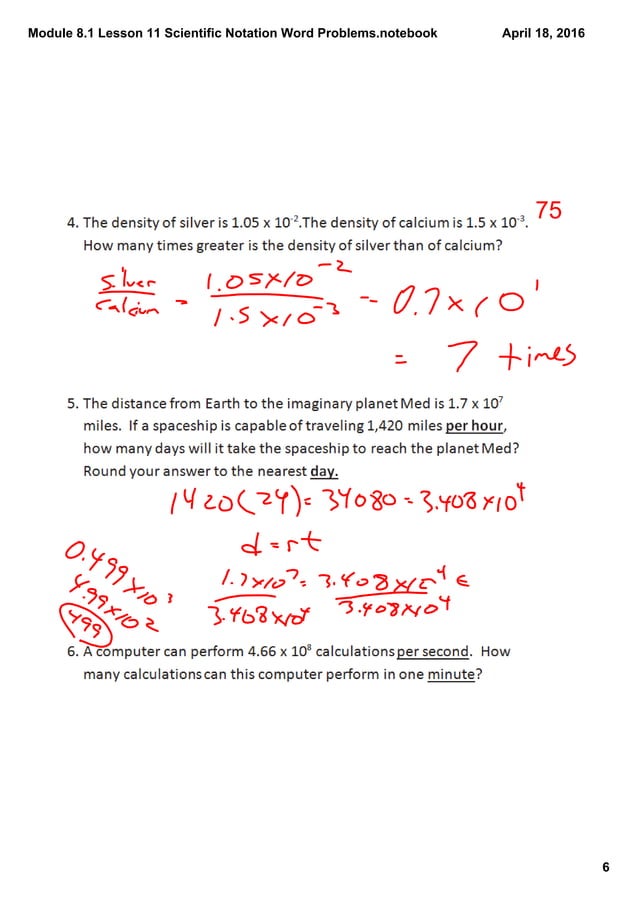 Module 8.1 Lesson 11 Scientific Notation Word Problems.notebook April 18, 2016
75
4. The density of silver is 1.05 x 10⁻².The density of calcium is 1.5 x 10⁻³.
How many times greater is the density of silver than of calcium?
Silver / Calcium = 1.05x10⁻² / 1.5x10⁻³ = 0.7x10¹
= 7 times
5. The distance from Earth to the imaginary planet Med is 1.7 x 10⁷
miles. If a spaceship is capable of traveling 1,420 miles per hour,
how many days will it take the spaceship to reach the planet Med?
Round your answer to the nearest day.
1420(24)= 34080 = 3.408x10⁴
d = rt
1.7x10⁷ / 3.408x10⁴ = 3.408x10⁴ t / 3.408x10⁴
0.499x10³
4.99x10²
499
6. A computer can perform 4.66 x 10⁸ calculations per second. How
many calculations can this computer perform in one minute?
6